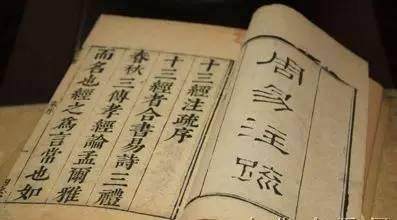 周易注疏
十三經注疏序
十三經者合書易詩三禮
春秋三傳孝經論孟爾雅
而名也經之爲言常也如